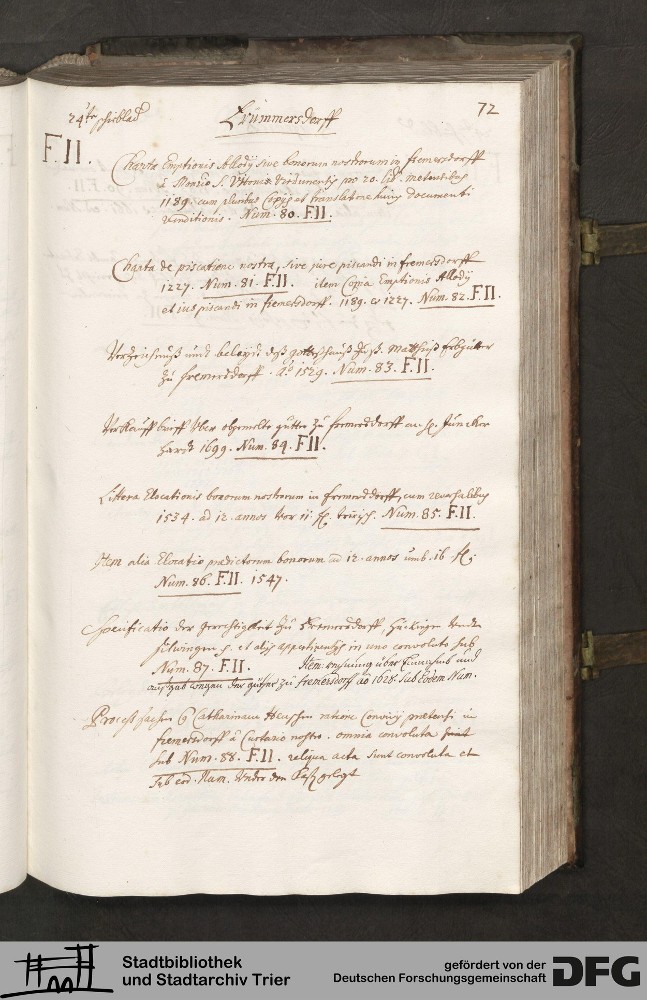 24te schiblad
Frümmersdorff
72
F.II.
Charta Emptionis Allodÿ sive bonorum nostrorum in fremersdorff
à Monrio S. Vitonis Virdunensis pro 20. lib. metensibus
1189. cum pluribus Copÿs et translatione huius documenti
venditionis. Num. 80. F.II.
Charta de piscatione nostra, sive jure piscandi in fremersdorff
1227. Num. 81. F.II. item Copia Emptionis Allodÿ
et ius piscandi in fremersdorff. 1189. & 1227. Num. 82. F.II.
Verzeichnuß und belayd: deß gotteßhauß St. Matthiaß Erbgütter
zu fremersdorff. Ao 1529. Num. 83. F.II.
Verkauff brieff Vber obgemelte gütter zu fremersdorff an H. Juncker
1699. Num. 84. F.II.
Littera Elocationis bonorum nostrorum in fremersdorff, cum reversalibus
1534. ad 12. annos vor 11. fl. trirsch. Num. 85. F.II.
Item alia Elocatio praedictorum bonorum ad 12. annos umb. 16 fl.
Num. 86. F.II. 1547.
Specificatio der gerechtigkeit zu Fremersdorff,
silwingen et alÿs appertinentÿs in uno convoluto sub
Num. 87. F.II. Item über Einnahmb und
außgab wegen der gühter zu fremersdorff ao 1628. sub eodem Num.
Process sachen Catharinam ratione in
fremersdorff à Curtario nostro. omnia convoluta
sub Num. 88. F.II. reliqua acta sunt convoluta et
sub eod. Num. Under den gelegt
Stadtbibliothek
und Stadtarchiv Trier
gefördert von der
Deutschen Forschungsgemeinschaft
DFG